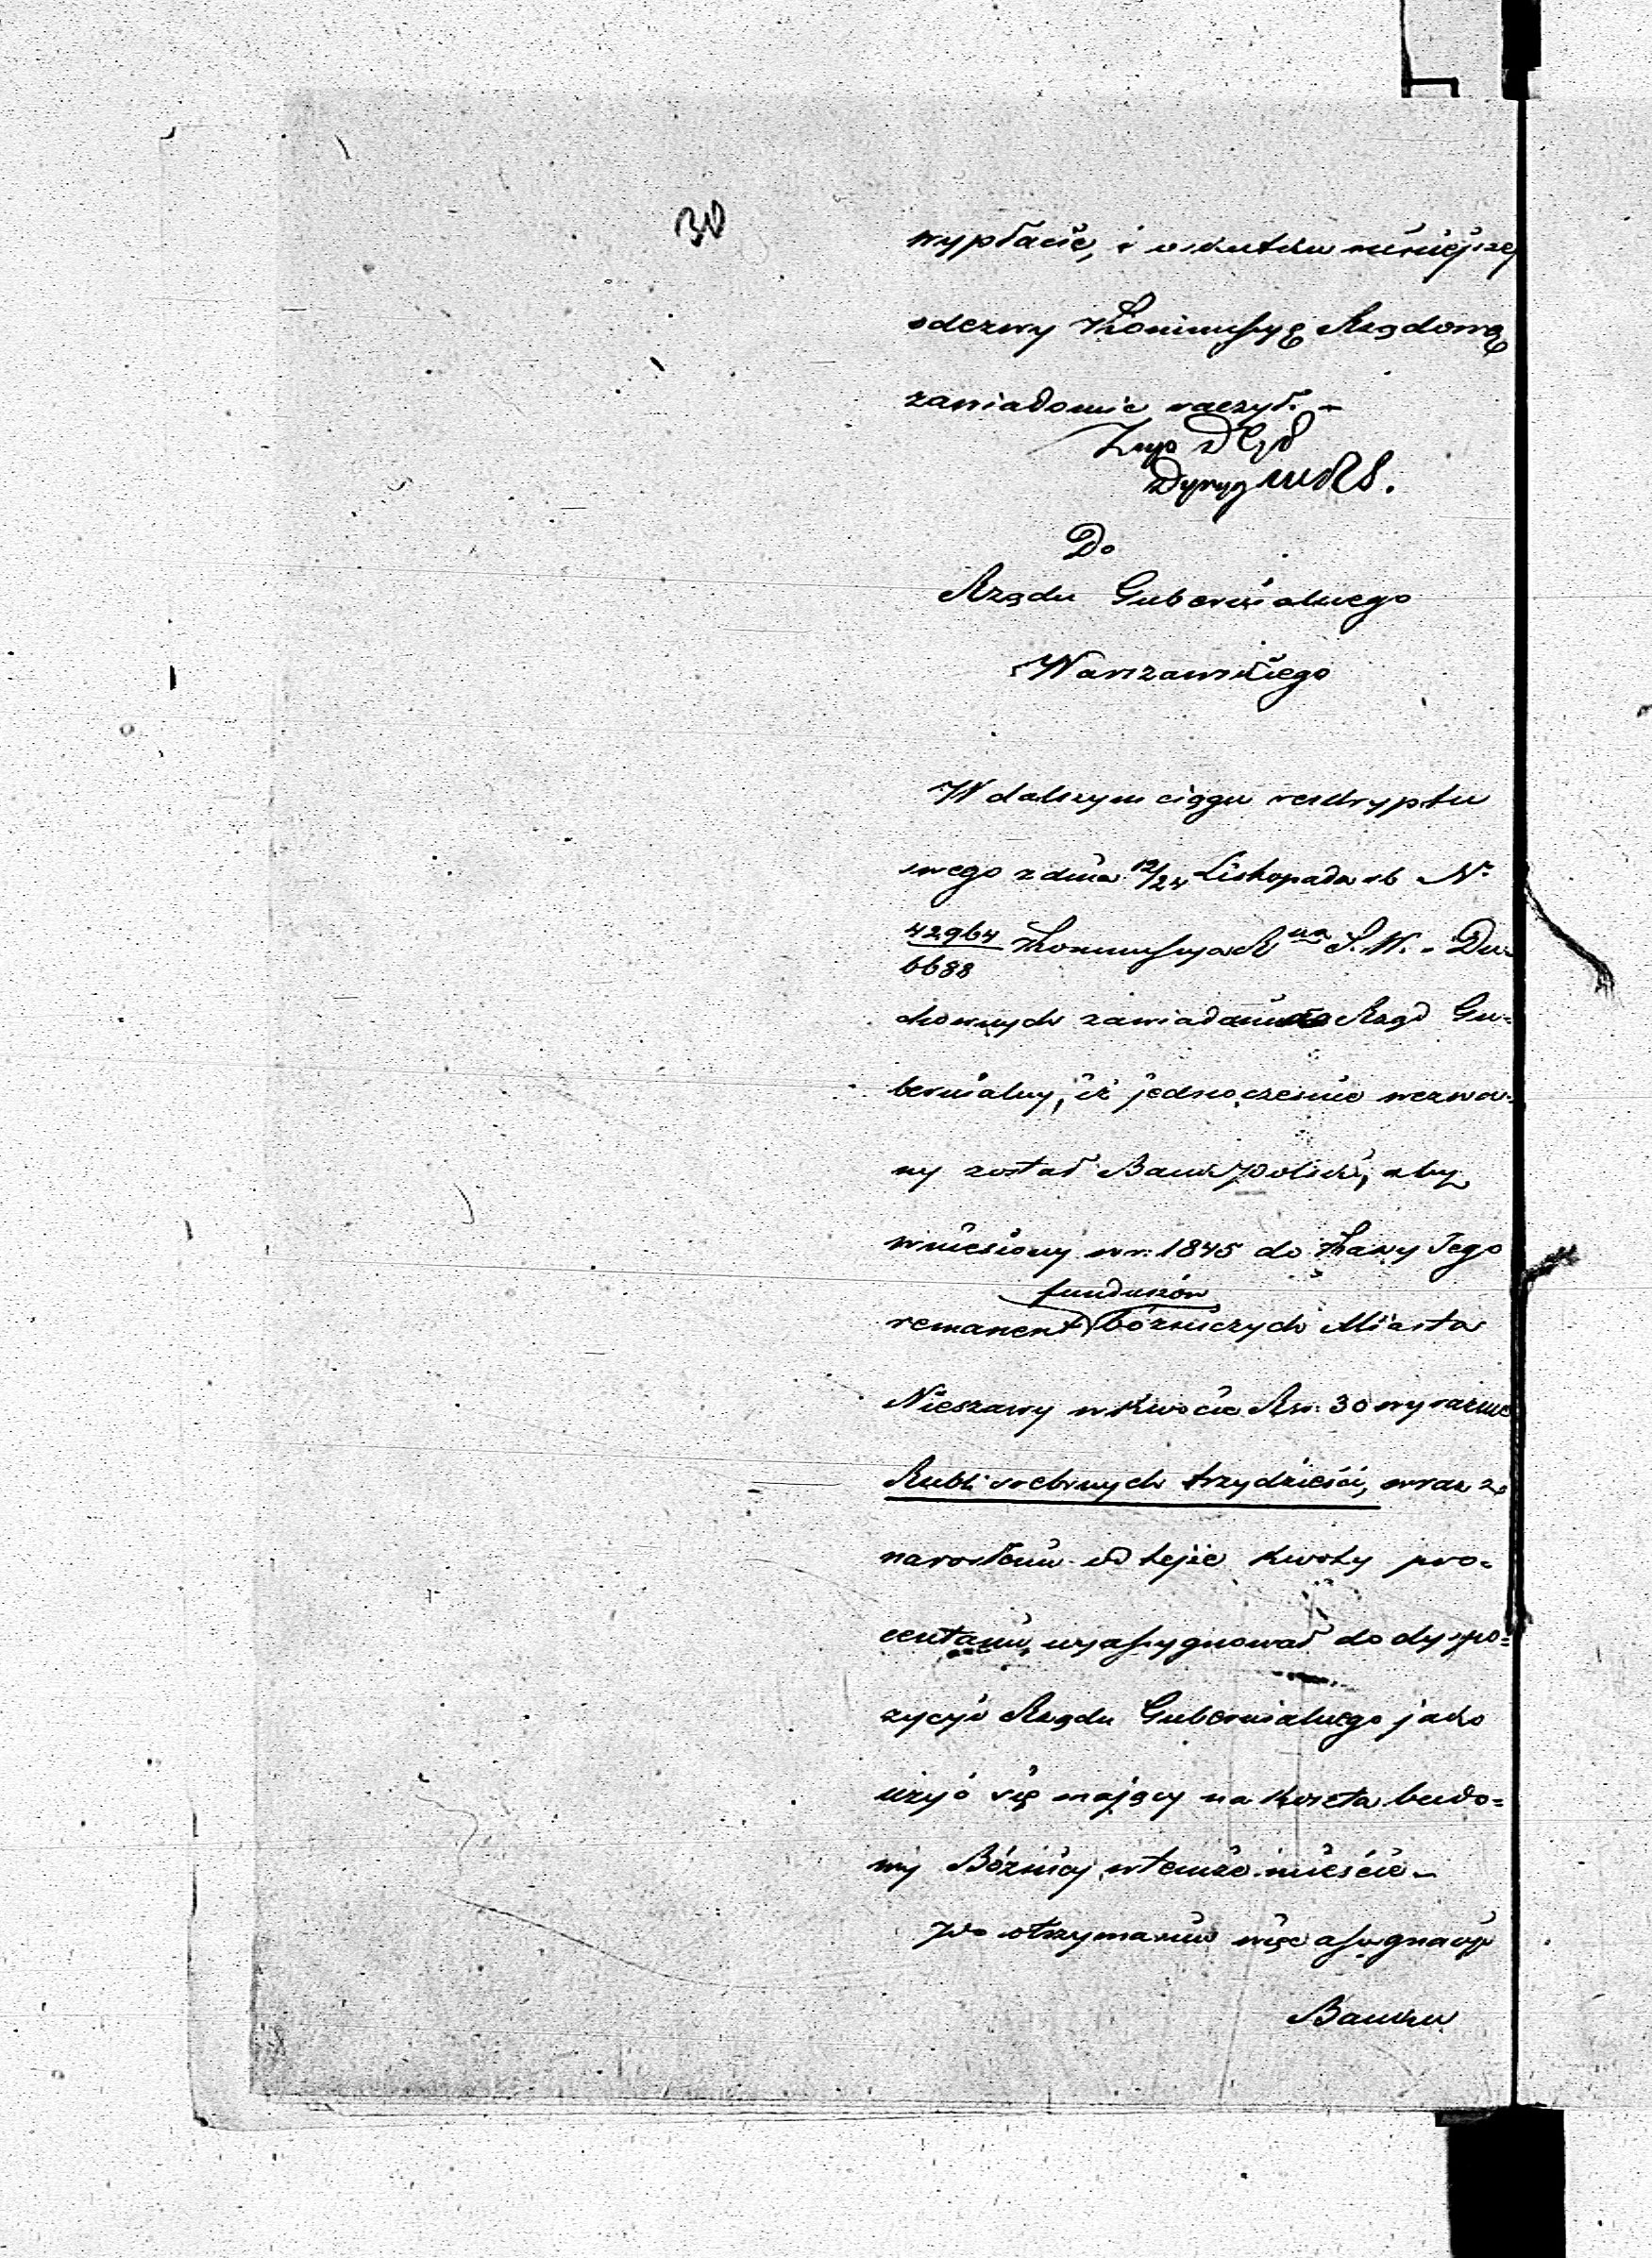 30
wypłacić, i o skutku niniejszej
odezwy Kommissyę Rządową
zawiadomić raczył. -
Dyryg
Do
Rządu Gubernialnego
Warszawskiego
W dalszym ciągu reskryptu
swego z dnia 12/24 Listopada rb No
42964/6688 Kommissya R na S. W. - Du=
chownych zawiadamia Rząd Gu=
bernialny, iż jednocześnie wezwa=
ny został Bank Polski, aby
wniesiony w r. 1845 do Kassy Jego
funduszów
remanent bóżniczych Miasta
Nieszawy w kwocie Rsr. 30 wyraźnie
Rubli srebrnych trzydzieści, wraz z
narosłemi od tejże kwoty pro=
centami, wyassygnował do dyspo=
zycyi Rządu Gubernialnego jako
użyć się mający na koszta budo=
wy Bóżnicy w temże mieście -
Po otrzymaniu więc assygnacyi
Banku